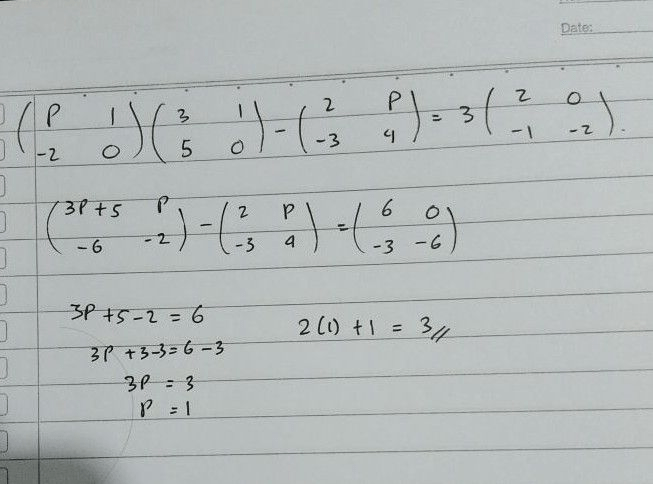 Date:
(P 1 -2 0)(3 1 5 0) - (2 P -3 4) = 3(2 0 -1 -2).
(3P+5 P -6 -2) - (2 P -3 4) = (6 0 -3 -6)
3P + 5 - 2 = 6
2(1) + 1 = 3//
3P + 3 - 3 = 6 - 3
3P = 3
P = 1